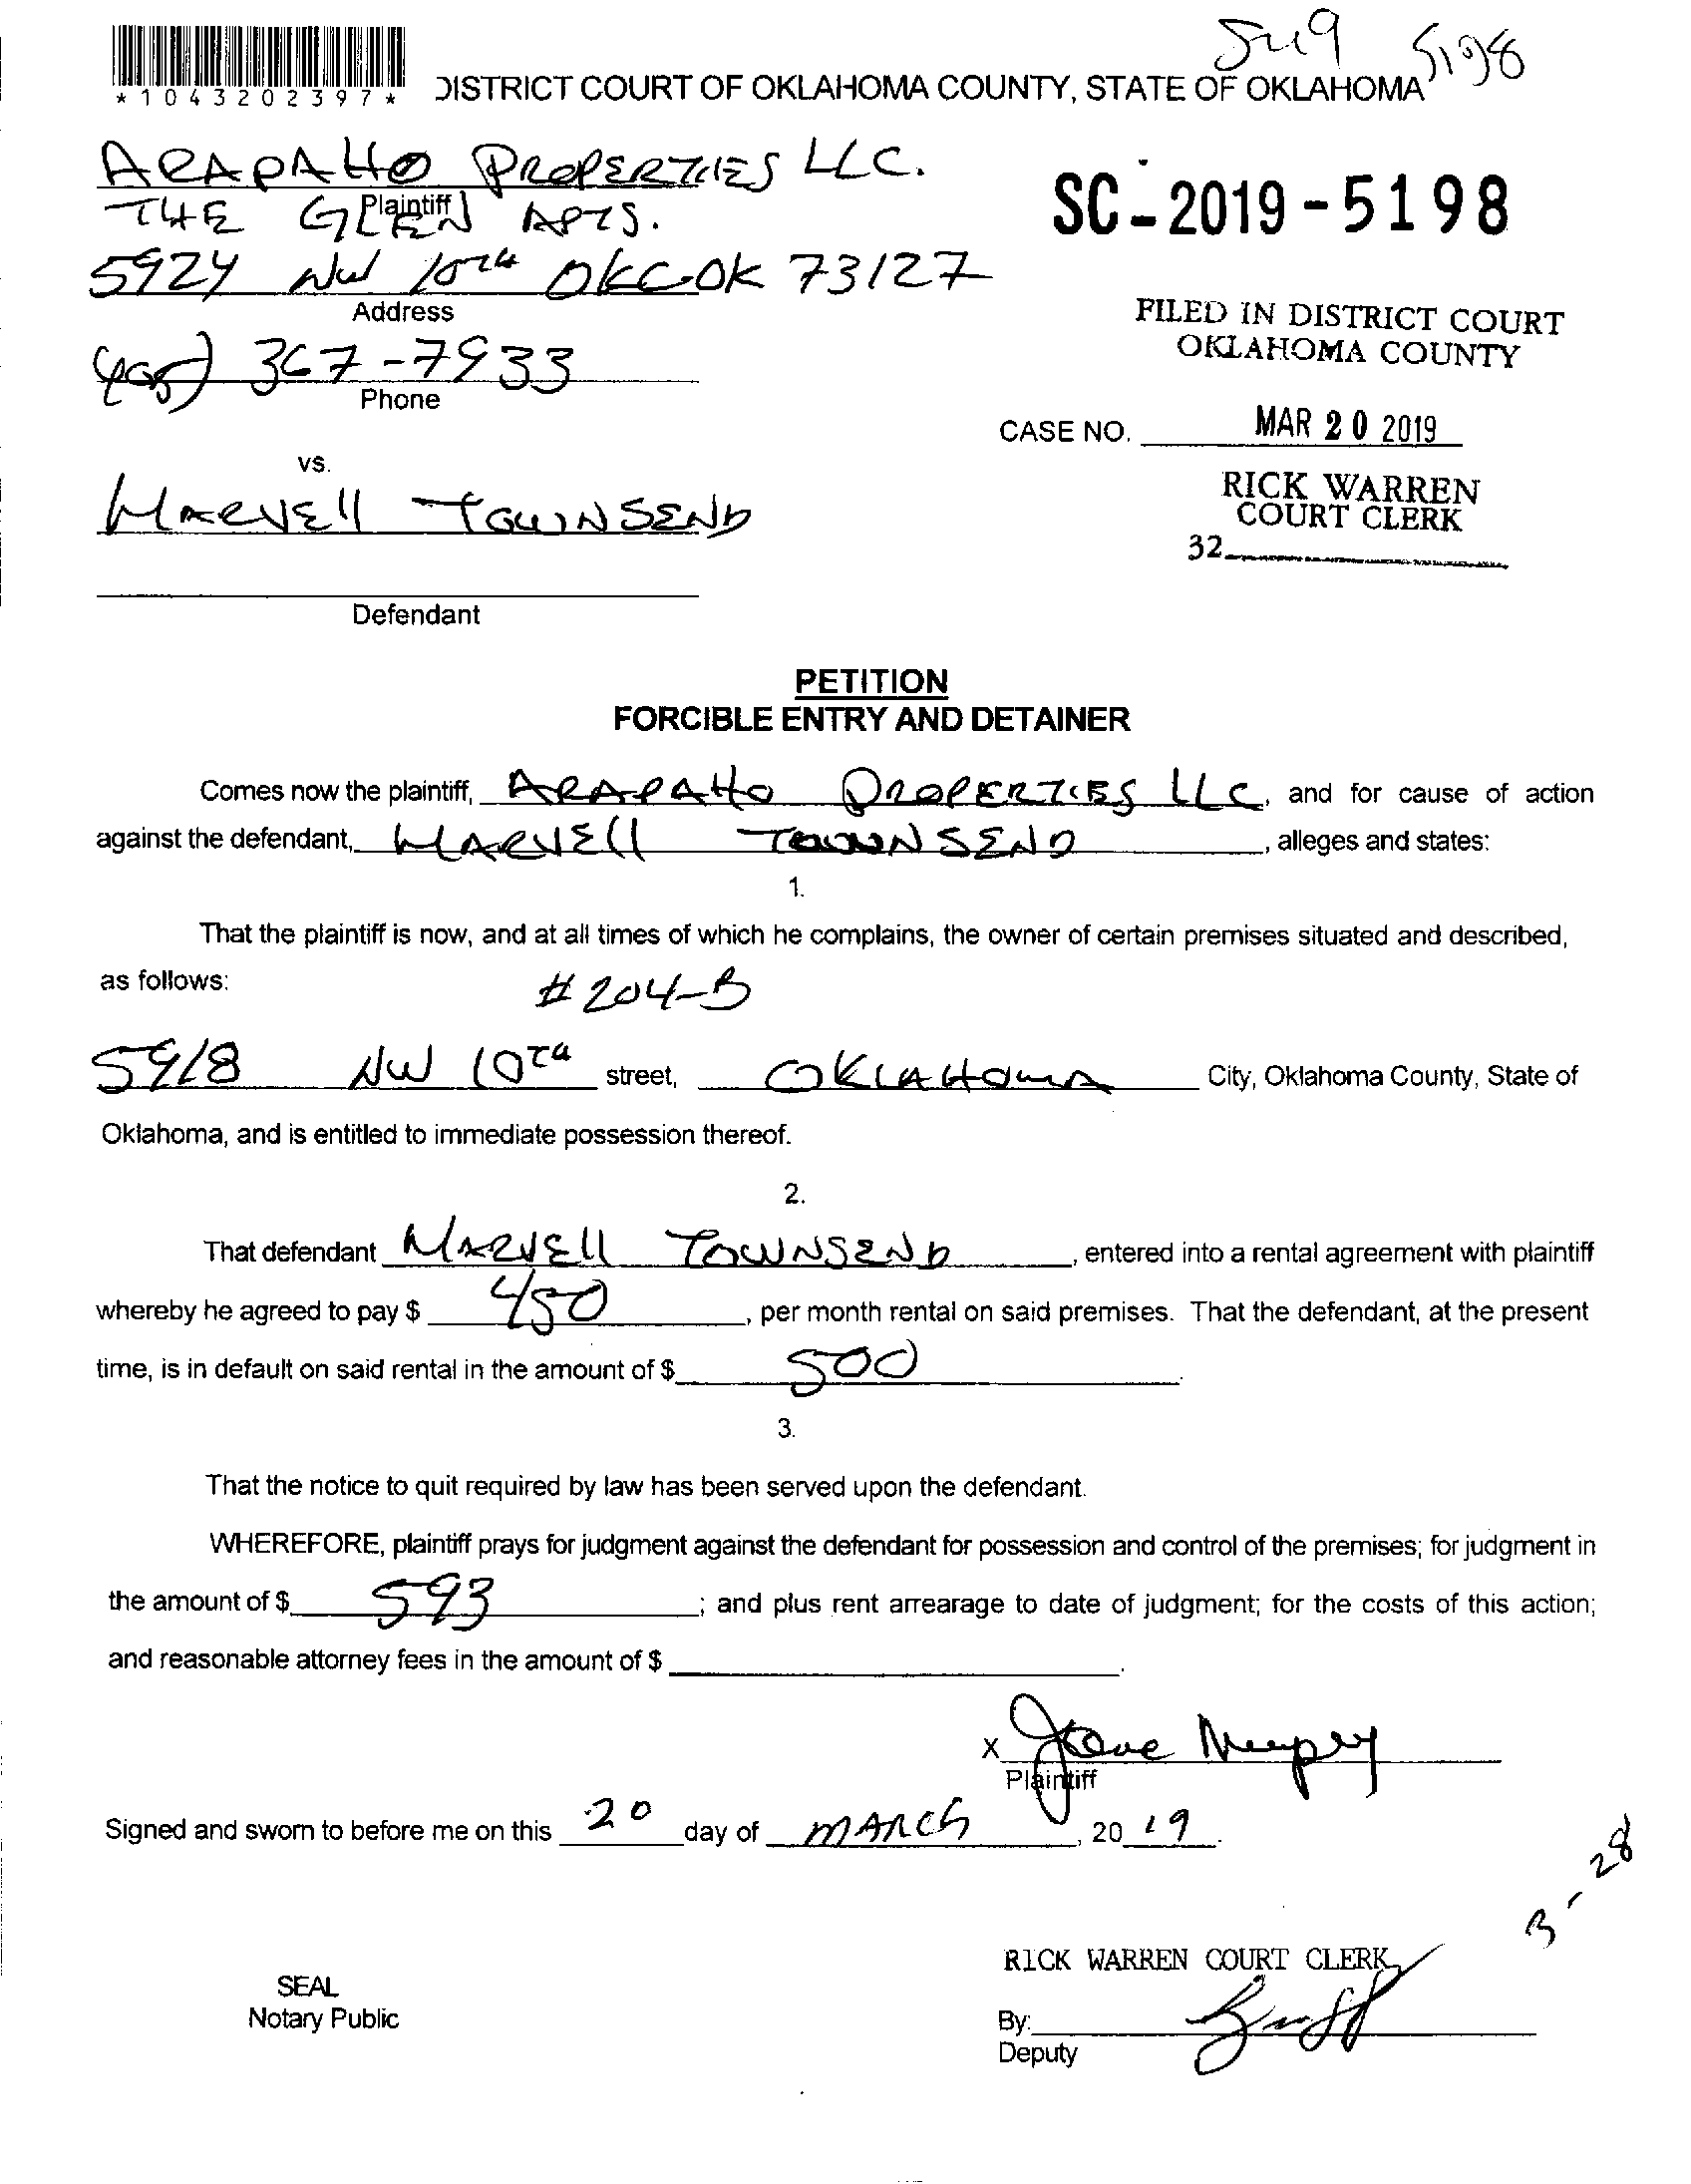 5198
*1043202397*
DISTRICT COURT OF OKLAHOMA COUNTY, STATE OF OKLAHOMA
ARAPAHO PROPERTIES LLC.
Plaintiff
THE GLEN APTS.
SC-2019-5198
5924 NW 10TH OKC OK 73127
Address
FILED IN DISTRICT COURT
OKLAHOMA COUNTY
(405) 367-7933
Phone
CASE NO. MAR 20 2019
vs.
RICK WARREN
COURT CLERK
MARVELL TOWNSEND
32
Defendant
PETITION
FORCIBLE ENTRY AND DETAINER
Comes now the plaintiff, ARAPAHO PROPERTIES LLC, and for cause of action
against the defendant, MARVELL TOWNSEND, alleges and states:
1.
That the plaintiff is now, and at all times of which he complains, the owner of certain premises situated and described,
as follows: #204-B
5918 NW 10TH street, OKLAHOMA City, Oklahoma County, State of
Oklahoma, and is entitled to immediate possession thereof.
2.
That defendant MARVELL TOWNSEND, entered into a rental agreement with plaintiff
whereby he agreed to pay $ 450, per month rental on said premises. That the defendant, at the present
time, is in default on said rental in the amount of $ 500.
3.
That the notice to quit required by law has been served upon the defendant.
WHEREFORE, plaintiff prays for judgment against the defendant for possession and control of the premises; for judgment in
the amount of $ 593; and plus rent arrearage to date of judgment; for the costs of this action;
and reasonable attorney fees in the amount of $ .
X
Plaintiff
Signed and sworn to before me on this 20 day of MARCH, 2019.
3-28
RICK WARREN COURT CLERK
SEAL
Notary Public
By:
Deputy